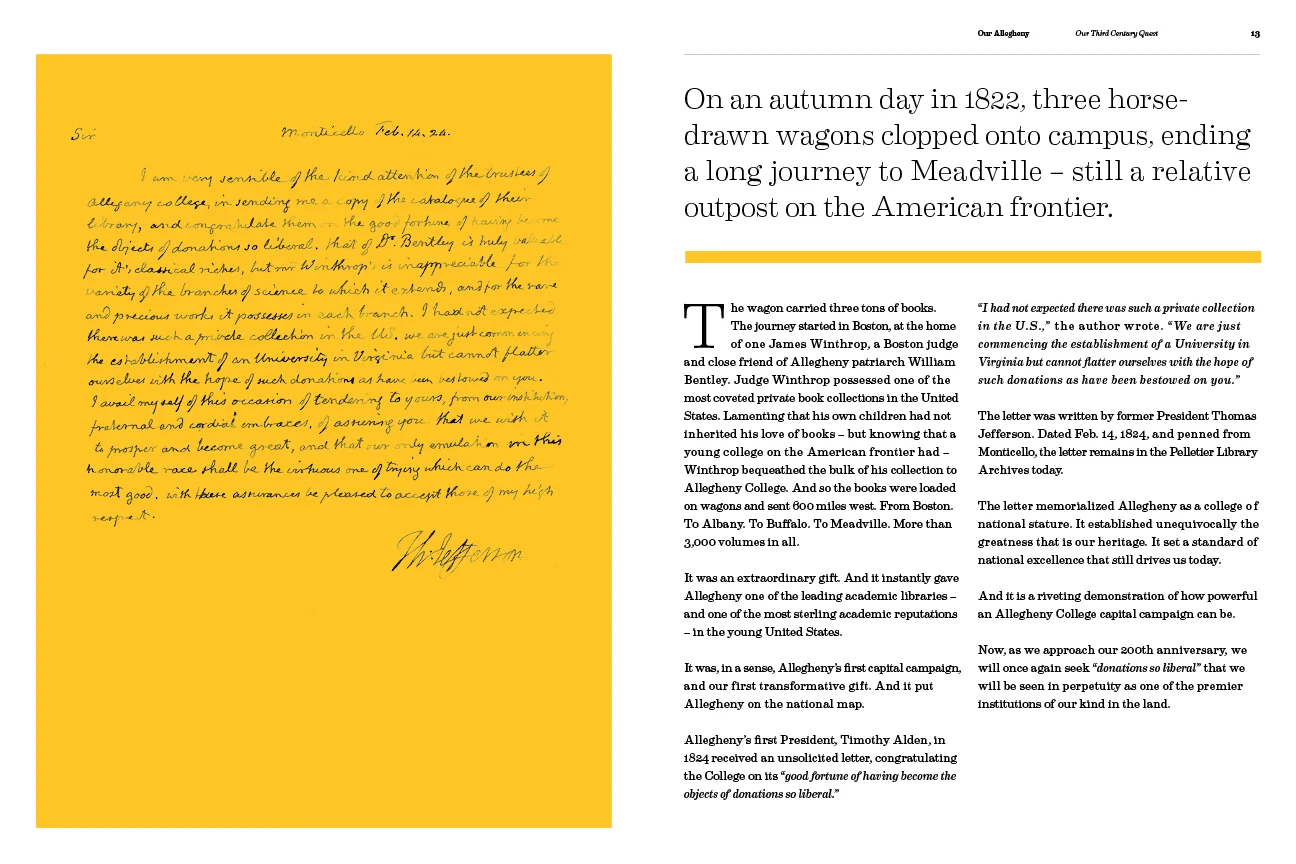 Sir Monticello Feb. 14. 24.
I am very sensible of the kind attention of the trustees of
Allegany college, in sending me a copy of the catalogue of their
library, and congratulate them on the good fortune of having become
the objects of donations so liberal. that of Dr. Bentley is truly valuable
for it's classical riches, but mr Winthrop's is inappreciable for the
variety of the branches of science to which it extends, and for the rare
and precious works it possesses in each branch. I had not expected
there was such a private collection in the US. we are just commencing
the establishment of an University in Virginia but cannot flatter
ourselves with the hope of such donations as have been bestowed on you.
I avail myself of this occasion of tendering to yours, from our institution,
fraternal and cordial embraces, of assuring you that we wish it
to prosper and become great, and that our only emulation in this
honorable race shall be the virtuous one of trying which can do the
most good. with these assurances be pleased to accept those of my high
respect.
Th: Jefferson
Our Allegheny Our Third Century Quest 13
On an autumn day in 1822, three horse-
drawn wagons clopped onto campus, ending
a long journey to Meadville – still a relative
outpost on the American frontier.
The wagon carried three tons of books.
The journey started in Boston, at the home
of one James Winthrop, a Boston judge
and close friend of Allegheny patriarch William
Bentley. Judge Winthrop possessed one of the
most coveted private book collections in the United
States. Lamenting that his own children had not
inherited his love of books – but knowing that a
young college on the American frontier had –
Winthrop bequeathed the bulk of his collection to
Allegheny College. And so the books were loaded
on wagons and sent 600 miles west. From Boston.
To Albany. To Buffalo. To Meadville. More than
3,000 volumes in all.
It was an extraordinary gift. And it instantly gave
Allegheny one of the leading academic libraries –
and one of the most sterling academic reputations
– in the young United States.
It was, in a sense, Allegheny's first capital campaign,
and our first transformative gift. And it put
Allegheny on the national map.
Allegheny's first President, Timothy Alden, in
1824 received an unsolicited letter, congratulating
the College on its "good fortune of having become the
objects of donations so liberal."
"I had not expected there was such a private collection
in the U.S.," the author wrote. "We are just
commencing the establishment of a University in
Virginia but cannot flatter ourselves with the hope of
such donations as have been bestowed on you."
The letter was written by former President Thomas
Jefferson. Dated Feb. 14, 1824, and penned from
Monticello, the letter remains in the Pelletier Library
Archives today.
The letter memorialized Allegheny as a college of
national stature. It established unequivocally the
greatness that is our heritage. It set a standard of
national excellence that still drives us today.
And it is a riveting demonstration of how powerful
an Allegheny College capital campaign can be.
Now, as we approach our 200th anniversary, we
will once again seek "donations so liberal" that we
will be seen in perpetuity as one of the premier
institutions of our kind in the land.